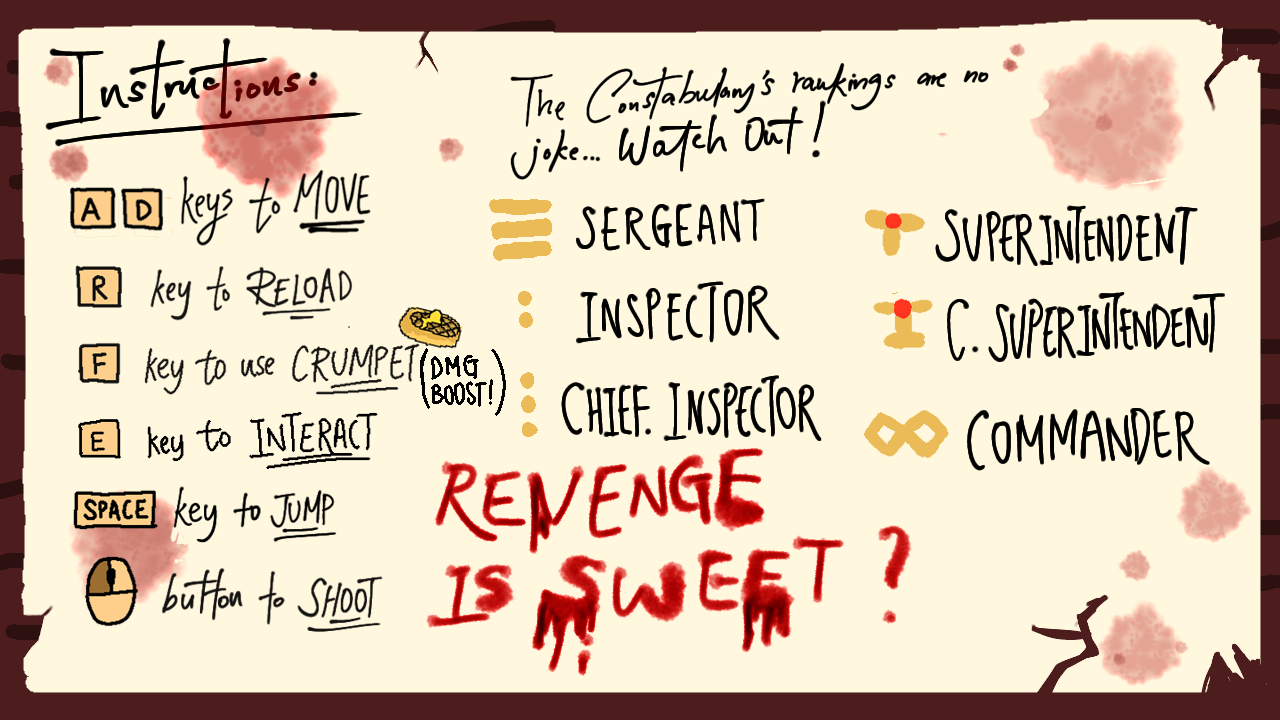 Instructions:
A D keys to MOVE
R key to RELOAD
F key to use CRUMPET
(DMG
BOOST!)
E key to INTERACT
SPACE key to JUMP
button to SHOOT
The Constabulary's rankings are no
joke... Watch Out!
SERGEANT
INSPECTOR
CHIEF. INSPECTOR
SUPERINTENDENT
C. SUPERINTENDENT
COMMANDER
REVENGE
IS SWEET?